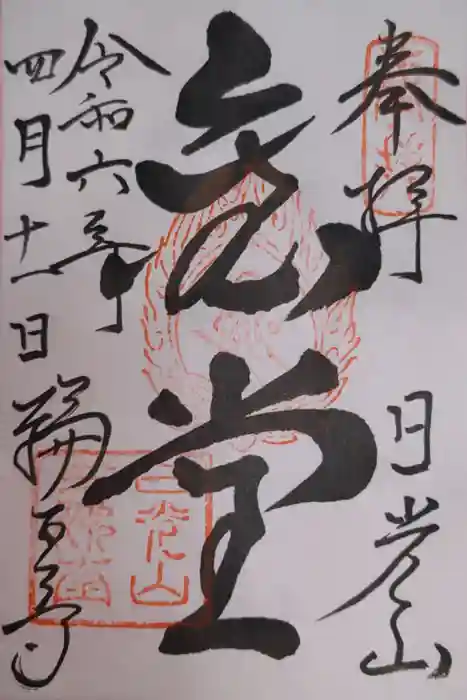 奉拝
日光山
金堂
令和六年
四月十一日
輪王寺